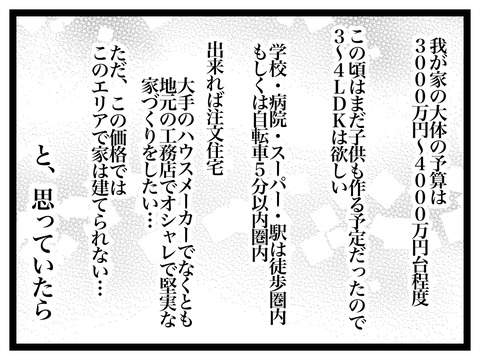 我が家の大体の予算は
3000万円〜4000万円台程度
この頃はまだ子供も作る予定だったので
3〜4LDKは欲しい
学校・病院・スーパー・駅は徒歩圏内
もしくは自転車5分以内圏内
出来れば注文住宅
大手のハウスメーカーでなくとも
地元の工務店でオシャレで堅実な
家づくりをしたい…
ただ、この価格では
このエリアで家は建てられない…
と、思っていたら